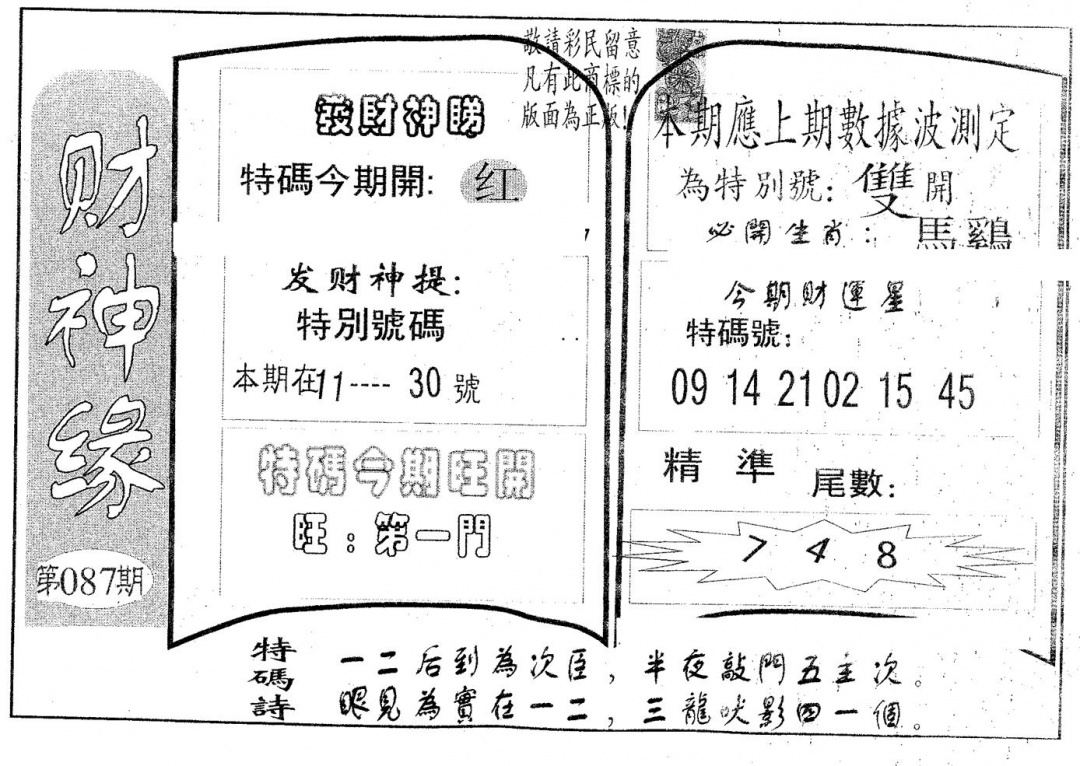 财神缘
第087期
敬請彩民留意
凡有此商標的
版面為正版!
發財神睇
特碼今期開: 红
发财神提:
特别號碼
本期在11----30號
特碼今期旺開
旺:第一門
本期應上期數據波測定
為特别號: 雙開
必開生肖: 馬鷄
今期財運星
特碼號:
09 14 21 02 15 45
精準 尾數:
7 4 8
特碼詩
一二后到為次臣, 半夜敲門五主次。
眼見為實在一二, 三龍吠影四一個。